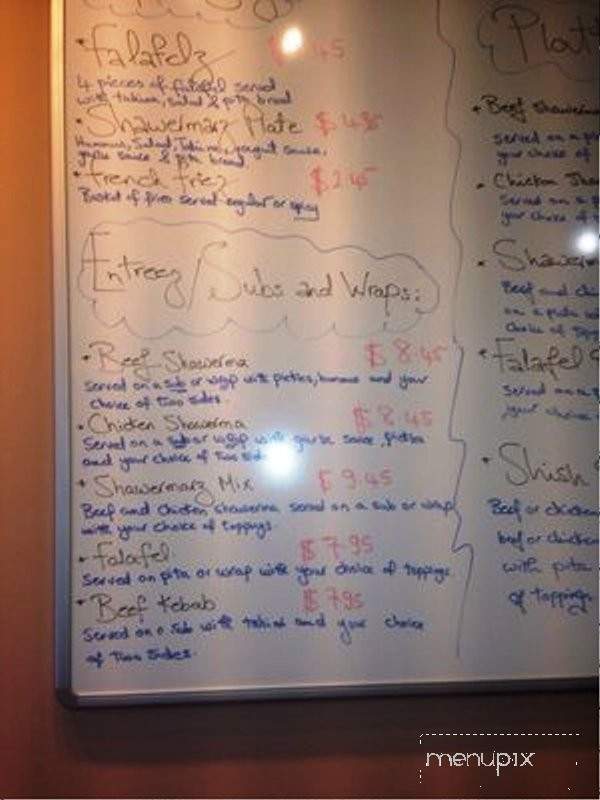 Falafelz
4 pieces of falafel served
with tahini, salad & pita bread
Shawermarz Plate $4.95
Hummus, Salad, Tahini, yougut sauce,
garlic sauce & pita bread.
French friez $2.45
Basket of fries served regular or spicy
Entreez/Subs and Wraps:
Beef Shawerma $8.45
Served on a sub or wrap with pickles, hummus and your
choice of two sides.
Chicken Shawerma $8.45
Served on a sub or wrap with garlic sauce, pickles
and your choice of two sides
Shawermarz Mix $9.45
Beef and chicken Shawerma served on a sub or wrap
with your choice of toppings.
falafel $7.95
Served on pita or wrap with your choice of toppings.
Beef Kebab $7.95
Served on a sub with tahini and your choice
of two sides.
Beef Shawerma
Served on a
your choice of
Chicken
Served on a
your choice of
Beef and
on a pita
choice of
Falafel
Served on a
your choice
Shish
Beef or chicken
beef or chicken
with pita
of toppings
menupix